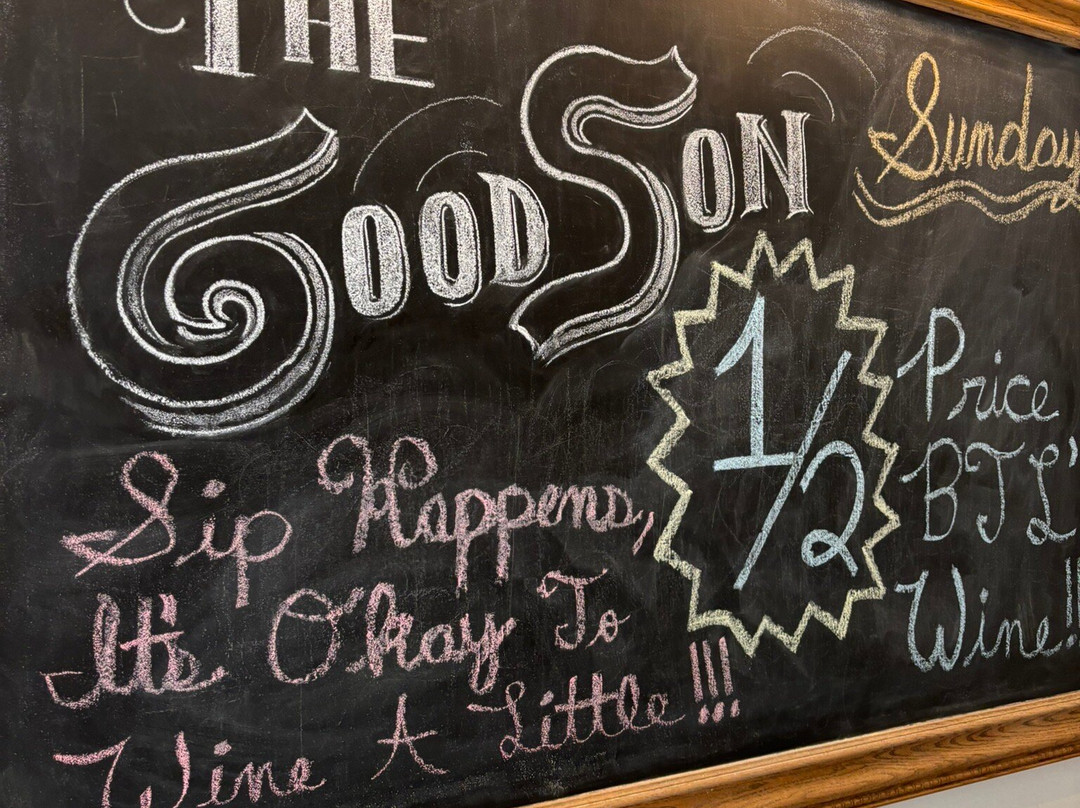 THE
GOOD SON
Sip Happens,
It's Okay To
Wine A Little!!!
Sunday
1/2
Price
BTL'
Wine!!